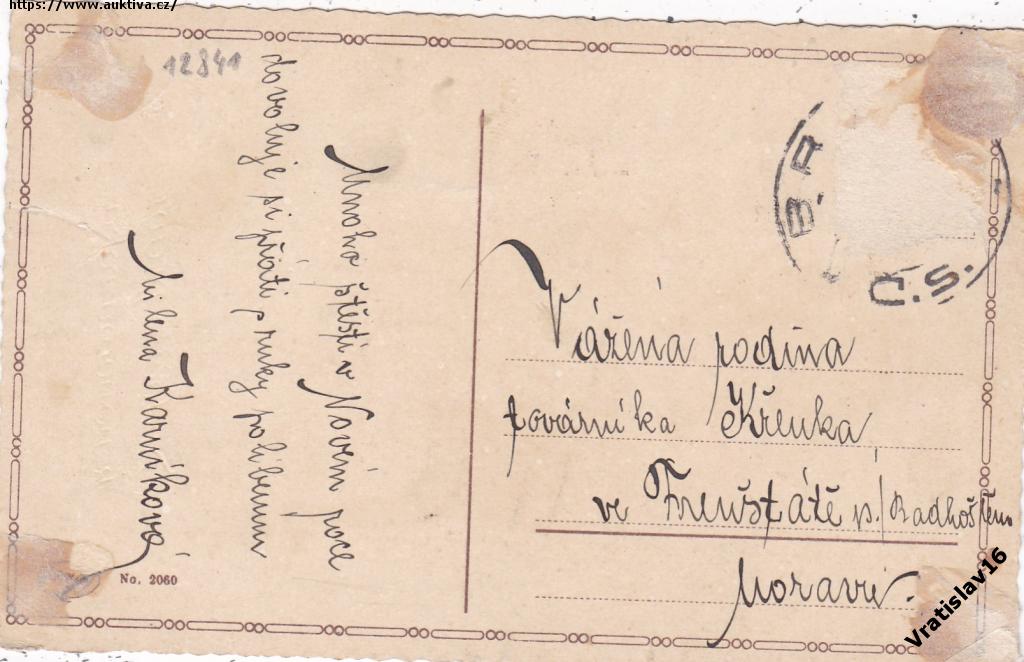 https://www.auktiva.cz/
12841
Mnoho štěstí v Novém roce
dovoluje si přáti s ruky políbením
Milena Karníková
No. 2060
B. R
Č.S.
Vážená rodina
továrníka Křenka
ve Frenštátě p./Radhoštěm
Moravě.
Vratislav16